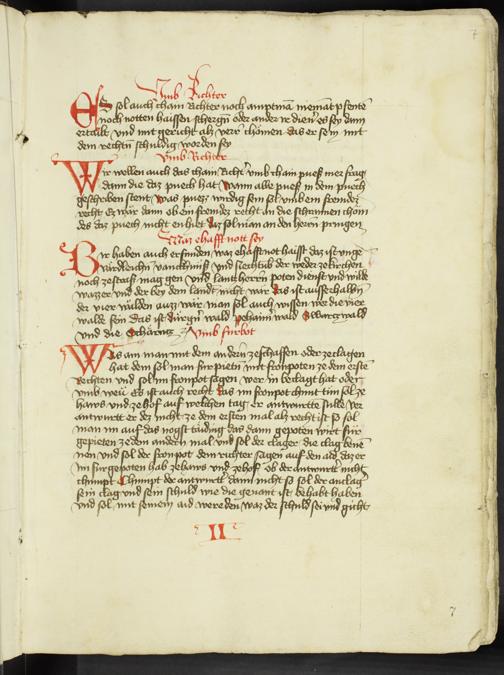 7
Vmb Richter
Es sol auch chain Richter noch amptman niemāt pfente
noch notten haissen schergn oder ander ir dien' es sey dann
ertailt vnd mit gericht als verr chömen das er sey mit
dem rechtn schuldig worden sey
Vmb Richter
Wir wellen auch das chain Richt' vmb chain puess mer frag
dann die daz puech hat Wann alle puess in dem puech
geschriben stent was puezz wirdig sein sol vmb ein fremdez
recht Ez wär dann ob ein fremdez recht an die schrannen chöm
des daz puech nicht enhiet daz sol man an den herrn pringen
Waz ehafft nott sey
Wir haben auch erfunden waz ehafft not haisst daz ist vnge
värdleichn vanchnuss vnd Siechtub der weder ze kirchen
noch ze strass mag gen vnd lantz herrn poten dienst vnd wilde
wazzer vnd der bey dem lanndt nicht wär das ist ausserhalbn
der vier wälden auz wär man sol auch wissen wo die vier
wälde sein Das ist dürgn' wald pehaim' wald Swartzwald
vnd die Schärnitz Vmb fürbot
Was ain man mit dem andern ze schaffen oder ze clagen
hat dem sol man für pietn mit fronpoten ze dem erste
Rechten vnd sol im fronpot sagen wer in beclagt hat oder
vmb weu Es ist auch recht das im fronpot chünt tün sol ze
haws vnd ze hof auf welchen tag er antwurtte sulle Ver
antwurtt er dez nicht ze dem ersten mal als recht ist So sol
man im auf das nagst täiding das dann gepoten wirt für
gepieten ze dem andern mal vnd sol der clager die clag bene
nen vnd sol der fronpot dem richter sagen auf den aid daz er
im für gepoten hab ze haws vnd ze hof ob der antwurtt' nicht
chumpt Chumpt der antwurtt' dann nicht so sol der anclag'
sein clag vnd sein schuld wie die genant ist behabt haben
vnd sol mit seinem aid were den waz der schuld sei vnd gücht
II
7